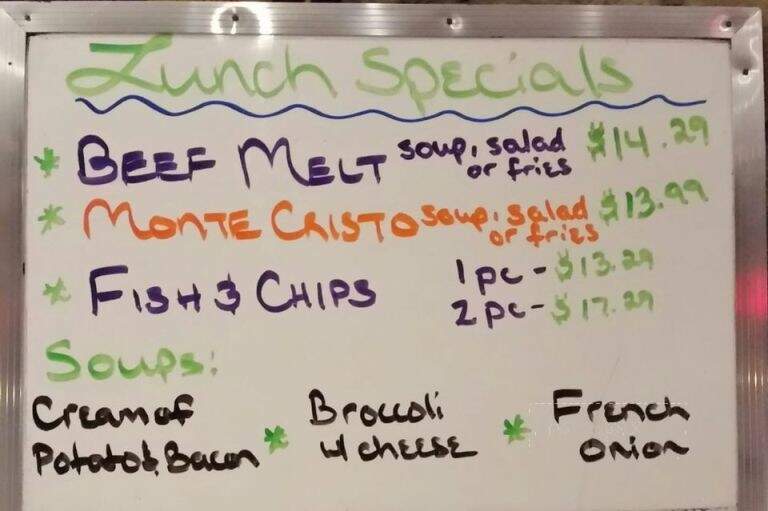 Lunch Specials
* BEEF MELT soup, salad or fries $14.29
* MONTE CRISTO soup, salad or fries $13.99
* FISH & CHIPS 1 pc - $13.29
2 pc - $17.29
Soups:
Cream of Potato & Bacon * Broccoli w/ cheese * French onion